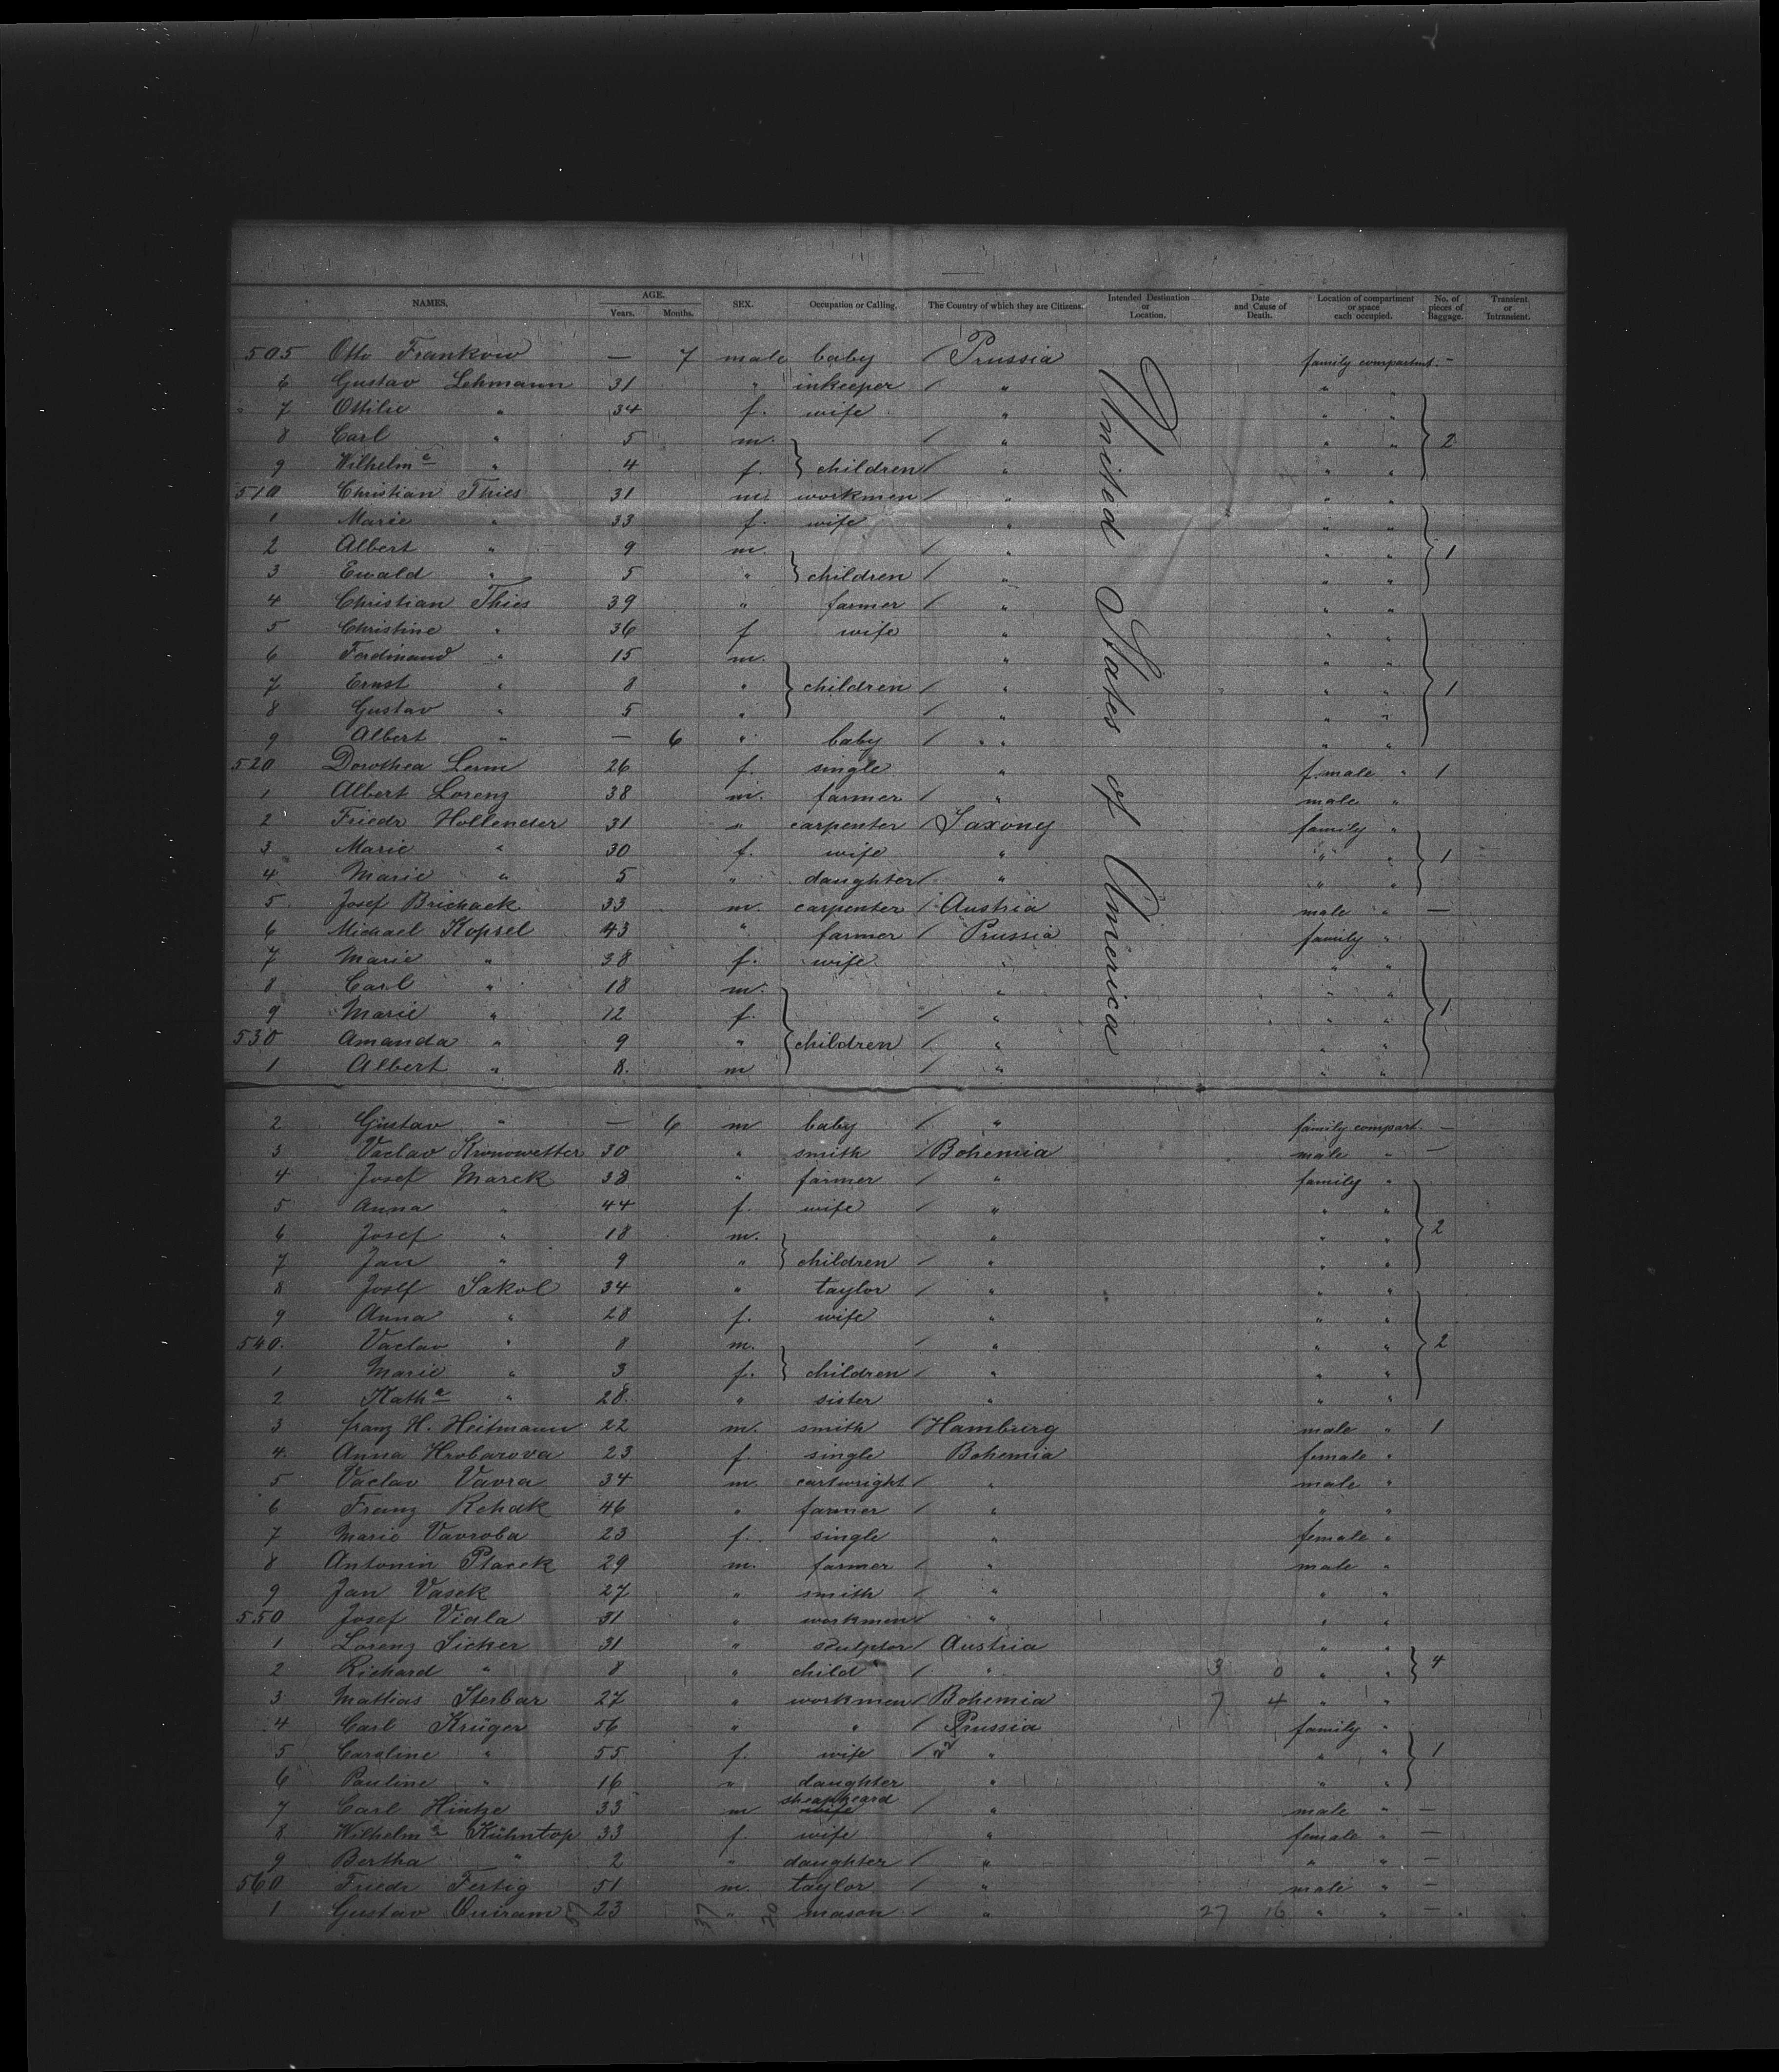 NAMES. AGE. Years. Months. SEX. Occupation or Calling. The Country of which they are Citizens. Intended Destination or Location. Date and Cause of Death. Location of compartment or space each occupied. No. of pieces of Baggage. Transient or Intransient.
United States of America
505 Otto Frankow — 7 male baby / Prussia family compartmt. —
6 Gustav Lehmann 31 " inkeeper / " " "
7 Ottilie " 34 f. wife " " "
8 Carl " 5 m. / " " " 2
9 Wilhelme " 4 f. } children / " " "
510 Christian Thies 31 m. workmen / " " "
1 Marie " 33 f. wife " " "
2 Albert " 9 m. / " " " 1
3 Ewald " 5 " } children / " " "
4 Christian Thies 39 " farmer / " " "
5 Christine " 36 f wife " " "
6 Ferdinand " 15 m. " " "
7 Ernst " 8 " } children / " " " 1
8 Gustav " 5 " / " " "
9 Albert " — 6 " baby / " " " "
520 Dorothea Lerm 26 f. single " female " 1
1 Albert Lorenz 38 m. farmer / " male "
2 Friedr Hollender 31 " carpenter / Saxony family "
3 Marie " 30 f. wife " " " 1
4 Marie " 5 " daughter / " " "
5 Josef Brichack 33 m. carpenter / Austria male " —
6 Michael Kopsel 43 " farmer / Prussia family "
7 Marie " 38 f. wife " " "
8 Carl " 18 m. " " "
9 Marie " 12 f. / " " " 1
530 Amanda " 9 " } children / " " "
1 Albert " 8. m / " " "
2 Gustav " — 6 m baby / " family compart. —
3 Vaclav Kronowetter 30 " smith / Bohemia male " —
4 Josef Marek 38 " farmer / " family "
5 Anna " 44 f. wife / " " "
6 Josef " 18 m. " " " 2
7 Jan " 9 " } children / " " "
8 Josef Sakol 34 " taylor / " " "
9 Anna " 28 f. wife " " "
540. Vaclav " 8 m. / " " " 2
1 Marie " 3 f. } children / " " "
2 Katha " 28. " sister " " "
3 franz H. Heitmann 22 m. smith / Hamburg male " 1
4. Anna Hrobarova 23 f. single Bohemia female "
5 Vaclav Vavra 34 m. cartwright / " male "
6 Franz Rehak 46 " farmer / " " "
7 Marie Vavroba 23 f. single " female "
8 Antonin Placek 29 m. farmer / " male "
9 Jan Vasek 27 " smith / " " "
550 Josef Viala 31 " workmen / " " "
1 Lorenz Sicker 31 " sculptor / Austria " "
2 Richard " 8 " child / " 3 0 " " 4
3 Mattias Sterbar 27 " workmen / Bohemia 7 4 " "
4 Carl Krüger 56 " " / Prussia family "
5 Caroline " 55 f. wife / " " " 1
6 Pauline " 16 " daughter " " "
7 Carl Hintze 33 m sheapheard wife / " male " —
8 Wilhelme Kühntop 33 f. wife " female " —
9 Bertha " 2 " daughter / " " " —
560 Friedr Fertig 51 m. taylor / " male " —
1 Gustav Quiram 23 " mason / " 27 16 " " —
57 37 20